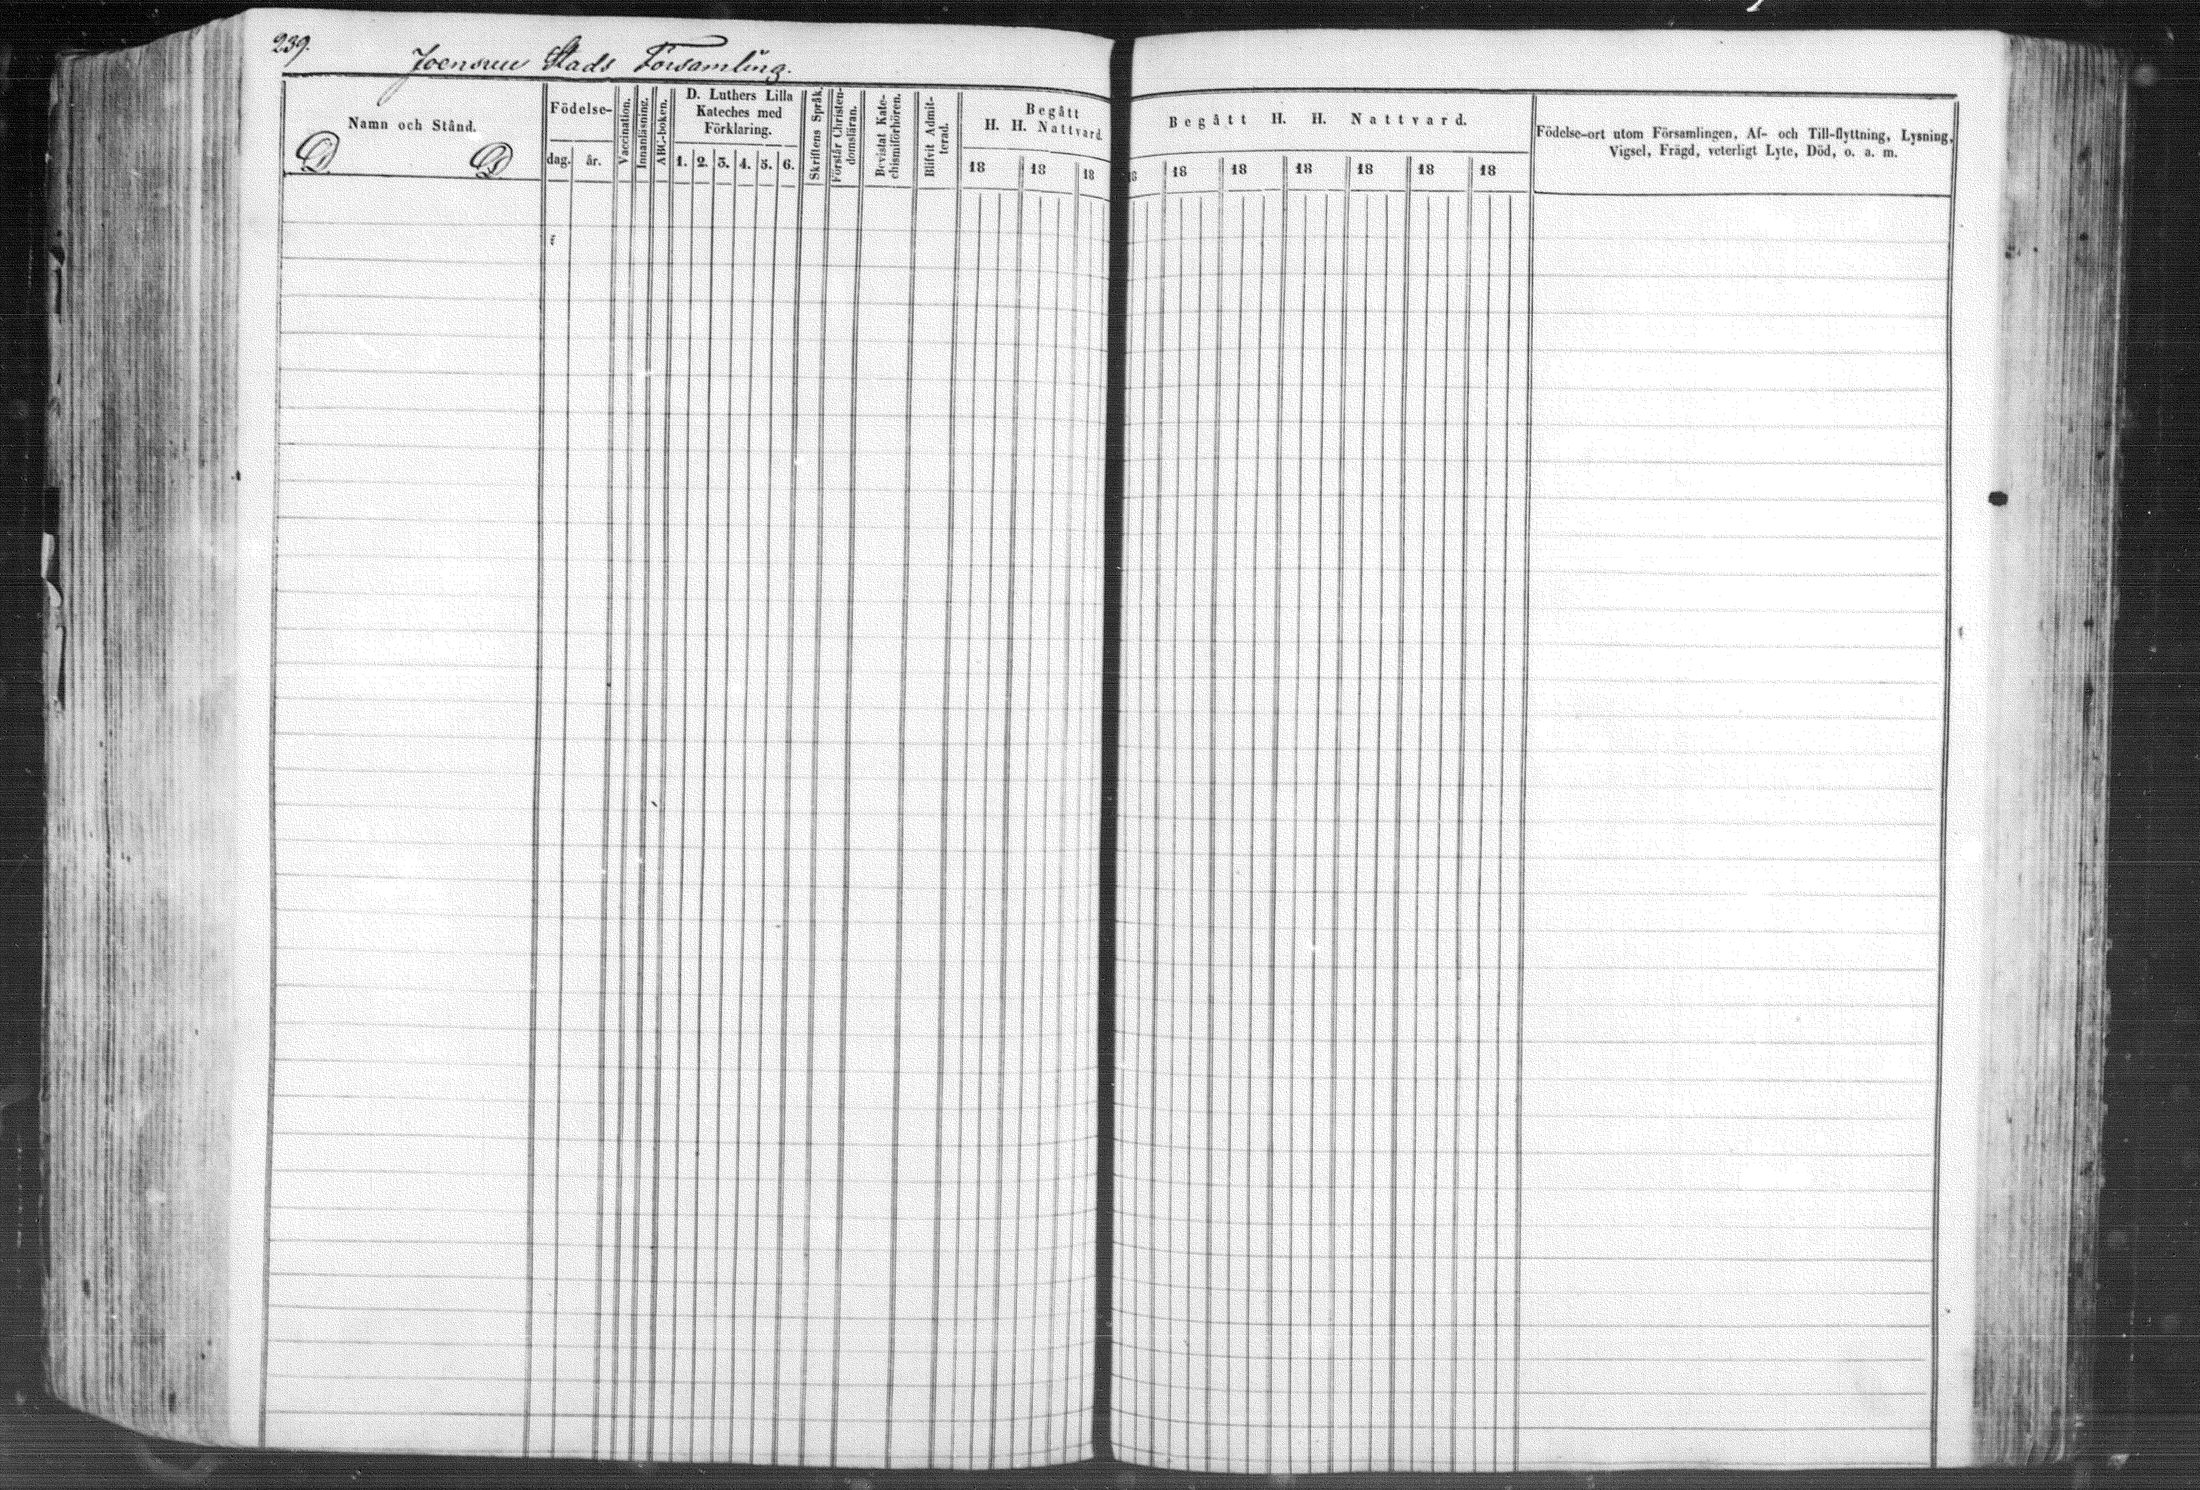 239.
Joensuu Stads Församling.
Namn och Stånd.
D D
Födelse-
dag. år.
Vaccination.
Innanläsning.
ABC-boken.
D. Luthers Lilla
Kateches med
Förklaring.
1. 2. 3. 4. 5. 6.
Skriftens Språk.
Förstår Christen-
domsläran.
Bevistat Kate-
chismiförhören.
Blifvit Admit-
terad.
Begått
H. H. Nattvard
18 18 18
Begått H. H. Nattvard.
18 18 18 18 18 18 18
Födelse-ort utom Församlingen, Af- och Till-flyttning, Lysning,
Vigsel, Frägd, veterligt Lyte, Död, o. a. m.